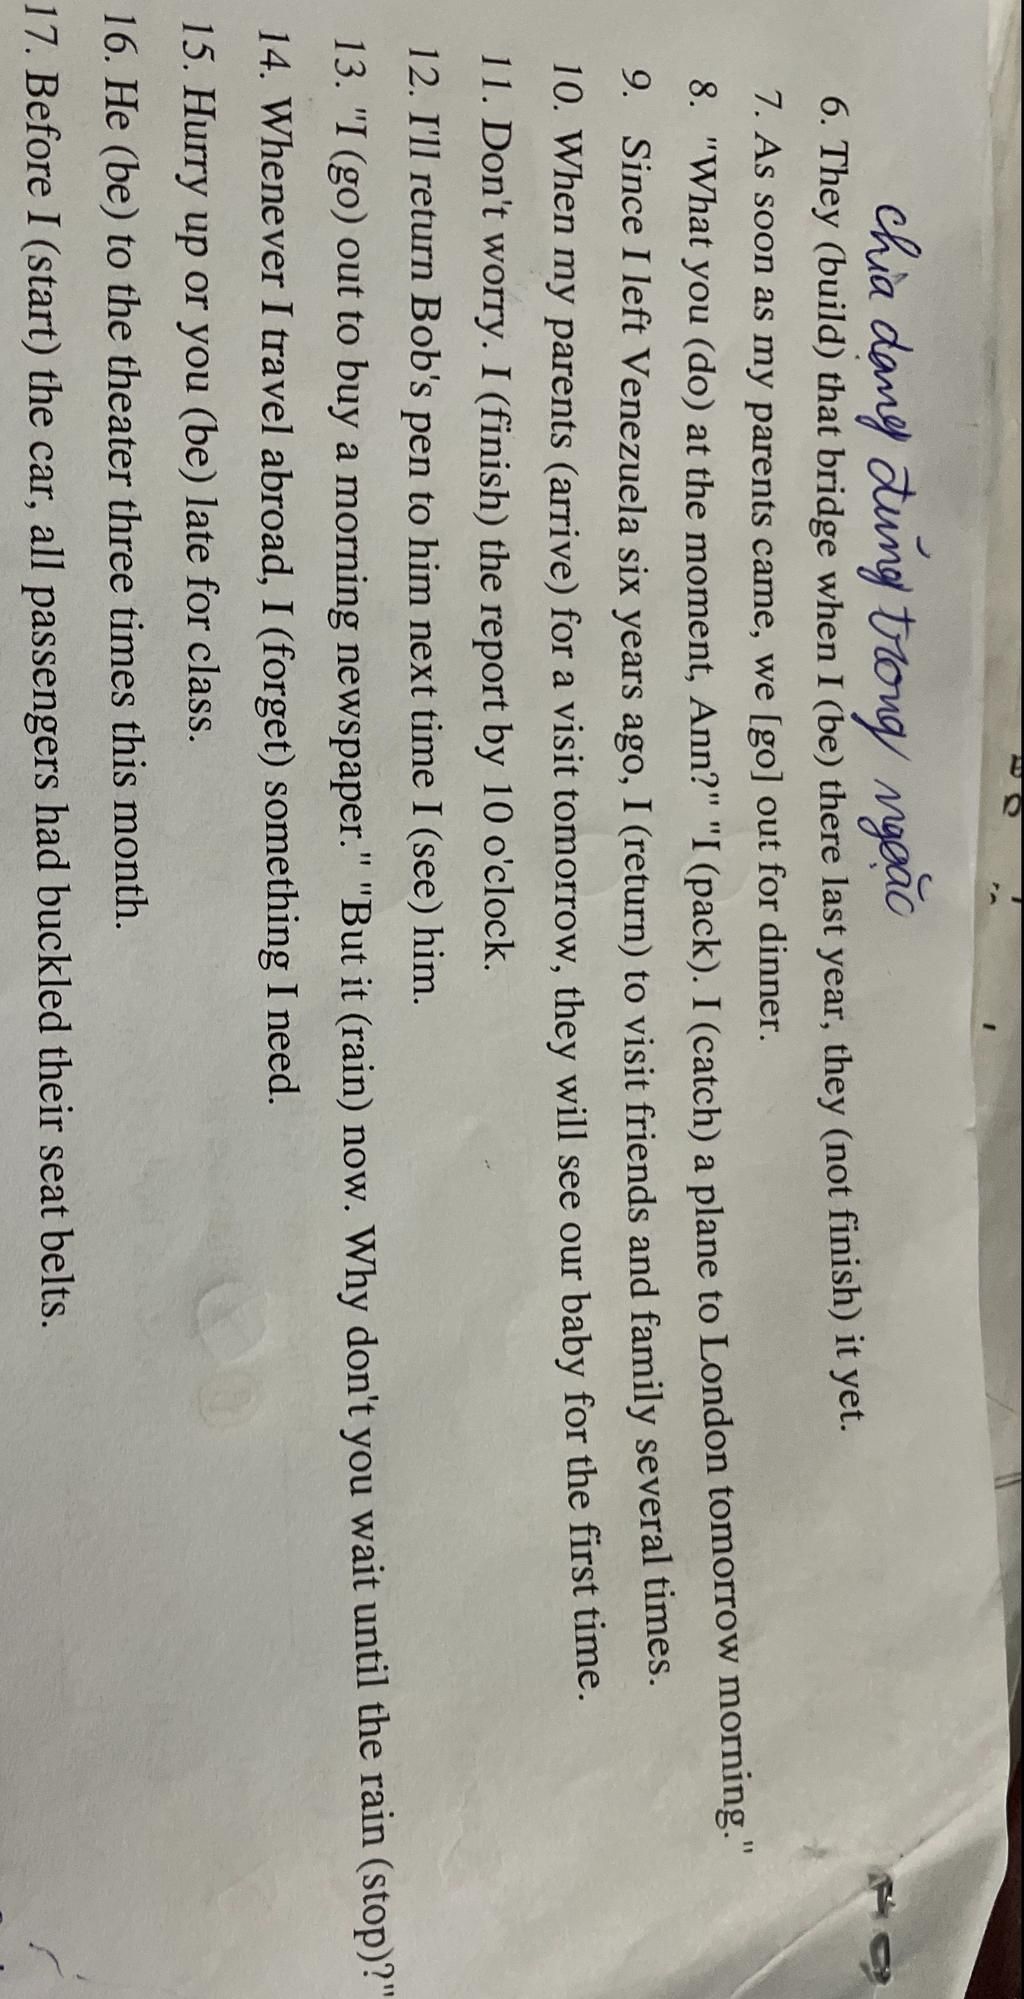 chia dạng đúng trong ngoặc
6. They (build) that bridge when I (be) there last year, they (not finish) it yet.
7. As soon as my parents came, we [go] out for dinner.
8. "What you (do) at the moment, Ann?" "I (pack). I (catch) a plane to London tomorrow morning."
9. Since I left Venezuela six years ago, I (return) to visit friends and family several times.
10. When my parents (arrive) for a visit tomorrow, they will see our baby for the first time.
11. Don't worry. I (finish) the report by 10 o'clock.
12. I'll return Bob's pen to him next time I (see) him.
13. "I (go) out to buy a morning newspaper." "But it (rain) now. Why don't you wait until the rain (stop)?"
14. Whenever I travel abroad, I (forget) something I need.
15. Hurry up or you (be) late for class.
16. He (be) to the theater three times this month.
17. Before I (start) the car, all passengers had buckled their seat belts.